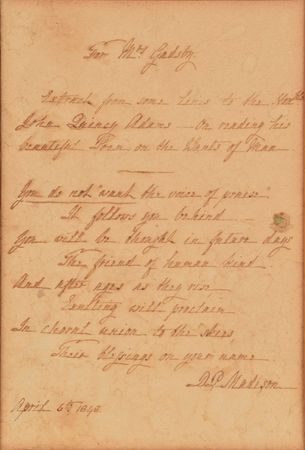 For Mrs Gadsby
Extract from some lines to the Honble
John Quincy Adams On reading his
beautiful Poem on the Wants of Man
You do not "want the voice of praise"
It follows you behind
You will be thought in future days
The friend of human kind
And after ages as they rise
Exulting will proclaim
In choral union to the skies,
Their blessings on your name
D.P. Madison
April 6th